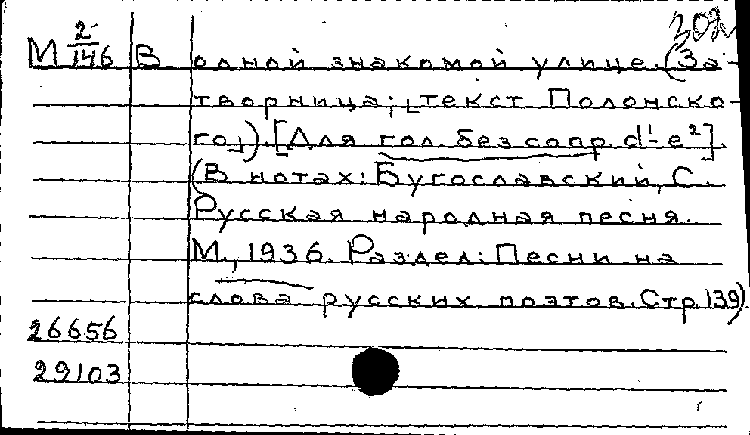 М 2/146 В одной знакомой улице. (За-
творница; [текст Полонско-
го]). [Для гол. без сопр. d¹-e²].
(В нотах: Бугославский, С.
Русская народная песня.
М., 1936. Раздел: Песни на
слова русских поэтов. Стр. 139)
26656
29103